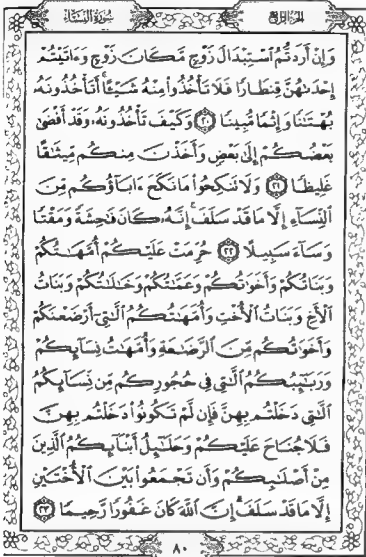 سُورَةُ النِّسَاء
الجزء الرابع
وَإِنْ أَرَدتُّمُ ٱسْتِبْدَالَ زَوْجٍ مَّكَانَ زَوْجٍ وَءَاتَيْتُمْ
إِحْدَىٰهُنَّ قِنطَارًا فَلَا تَأْخُذُوا۟ مِنْهُ شَيْـًٔا ۚ أَتَأْخُذُونَهُۥ
بُهْتَٰنًا وَإِثْمًا مُّبِينًا ٢٠ وَكَيْفَ تَأْخُذُونَهُۥ وَقَدْ أَفْضَىٰ
بَعْضُكُمْ إِلَىٰ بَعْضٍ وَأَخَذْنَ مِنكُم مِّيثَٰقًا
غَلِيظًا ٢١ وَلَا تَنكِحُوا۟ مَا نَكَحَ ءَابَآؤُكُم مِّنَ
ٱلنِّسَآءِ إِلَّا مَا قَدْ سَلَفَ ۚ إِنَّهُۥ كَانَ فَٰحِشَةً وَمَقْتًا
وَسَآءَ سَبِيلًا ٢٢ حُرِّمَتْ عَلَيْكُمْ أُمَّهَٰتُكُمْ
وَبَنَاتُكُمْ وَأَخَوَٰتُكُمْ وَعَمَّٰتُكُمْ وَخَٰلَٰتُكُمْ وَبَنَاتُ
ٱلْأَخِ وَبَنَاتُ ٱلْأُخْتِ وَأُمَّهَٰتُكُمُ ٱلَّٰتِىٓ أَرْضَعْنَكُمْ
وَأَخَوَٰتُكُم مِّنَ ٱلرَّضَٰعَةِ وَأُمَّهَٰتُ نِسَآئِكُمْ
وَرَبَٰٓئِبُكُمُ ٱلَّٰتِى فِى حُجُورِكُم مِّن نِّسَآئِكُمُ
ٱلَّٰتِى دَخَلْتُم بِهِنَّ فَإِن لَّمْ تَكُونُوا۟ دَخَلْتُم بِهِنَّ
فَلَا جُنَاحَ عَلَيْكُمْ وَحَلَٰٓئِلُ أَبْنَآئِكُمُ ٱلَّذِينَ
مِنْ أَصْلَٰبِكُمْ وَأَن تَجْمَعُوا۟ بَيْنَ ٱلْأُخْتَيْنِ
إِلَّا مَا قَدْ سَلَفَ ۗ إِنَّ ٱللَّهَ كَانَ غَفُورًا رَّحِيمًا ٢٣
٨٠